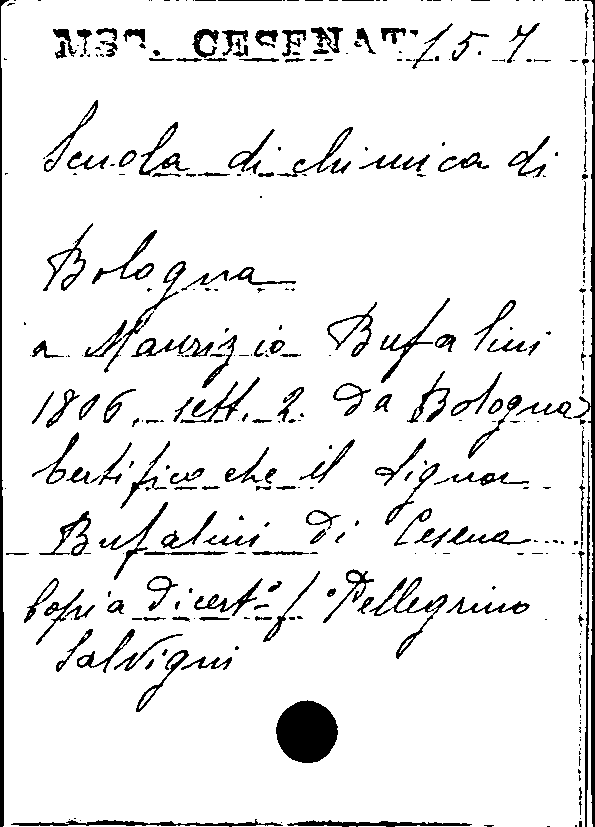 MSS. CESENATI 5. 7
Scuola di chimica di
Bologna
a Maurizio Bufalini
1806, sett. 2. Da Bologna
Certifico che il Signor
Bufalini di Cesena ...
Copia di cert.º f.º Pellegrino
Salvigni